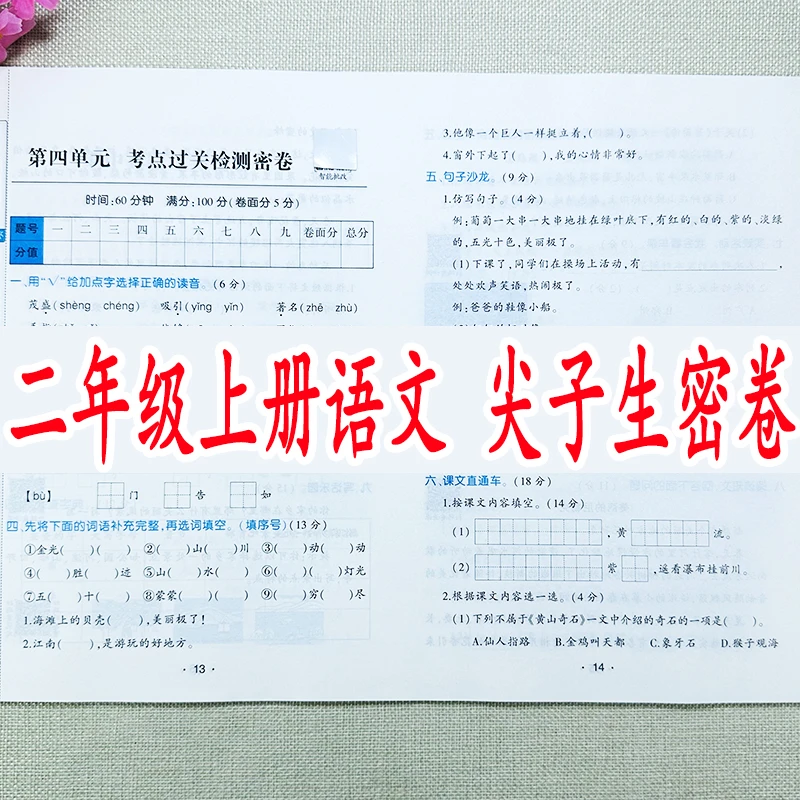 第四单元 考点过关检测密卷
智能批改
时间:60分钟 满分:100分(卷面分5分)
题号 一 二 三 四 五 六 七 八 九 卷面分 总分
分值
一、用“√”给加点字选择正确的读音。(6分)
茂盛(shèng chéng) 吸引(yǐng yǐn) 著名(zhē zhù)
二年级上册语文 尖子生密卷
[bù] 门 告 如
四、先将下面的词语补充完整,再选词填空。(填序号)(13分)
①金光( )( ) ②( )山( )川 ③( )动( )动
④( )胜( )迹 ⑤山( )水( ) ⑥( )( )灯光
⑦五( )十( ) ⑧蒙蒙( )( ) ⑨( )穷( )尽
1.海滩上的贝壳( ),美丽极了!
2.江南( ),是游玩的好地方。
· 13 ·
3.他像一个巨人一样挺立着,( )。
4.窗外下起了( ),我的心情非常好。
五、句子沙龙。(9分)
1.仿写句子。(4分)
例:葡萄一大串一大串地挂在绿叶底下,有红的、白的、紫的、淡绿
的,五光十色,美丽极了。
(1)下课了,同学们在操场上活动,有
处处欢声笑语,热闹极了。
例:爸爸的鞋像小船。
六、课文直通车。(18分)
1.按课文内容填空。(14分)
(1) ,黄 流。
(2) 紫 ,遥看瀑布挂前川。
2.根据课文内容选一选。(4分)
(1)下列不属于《黄山奇石》一文中介绍的奇石的一项是( )。
A.仙人指路 B.金鸡叫天都 C.象牙石 D.猴子观海
· 14 ·